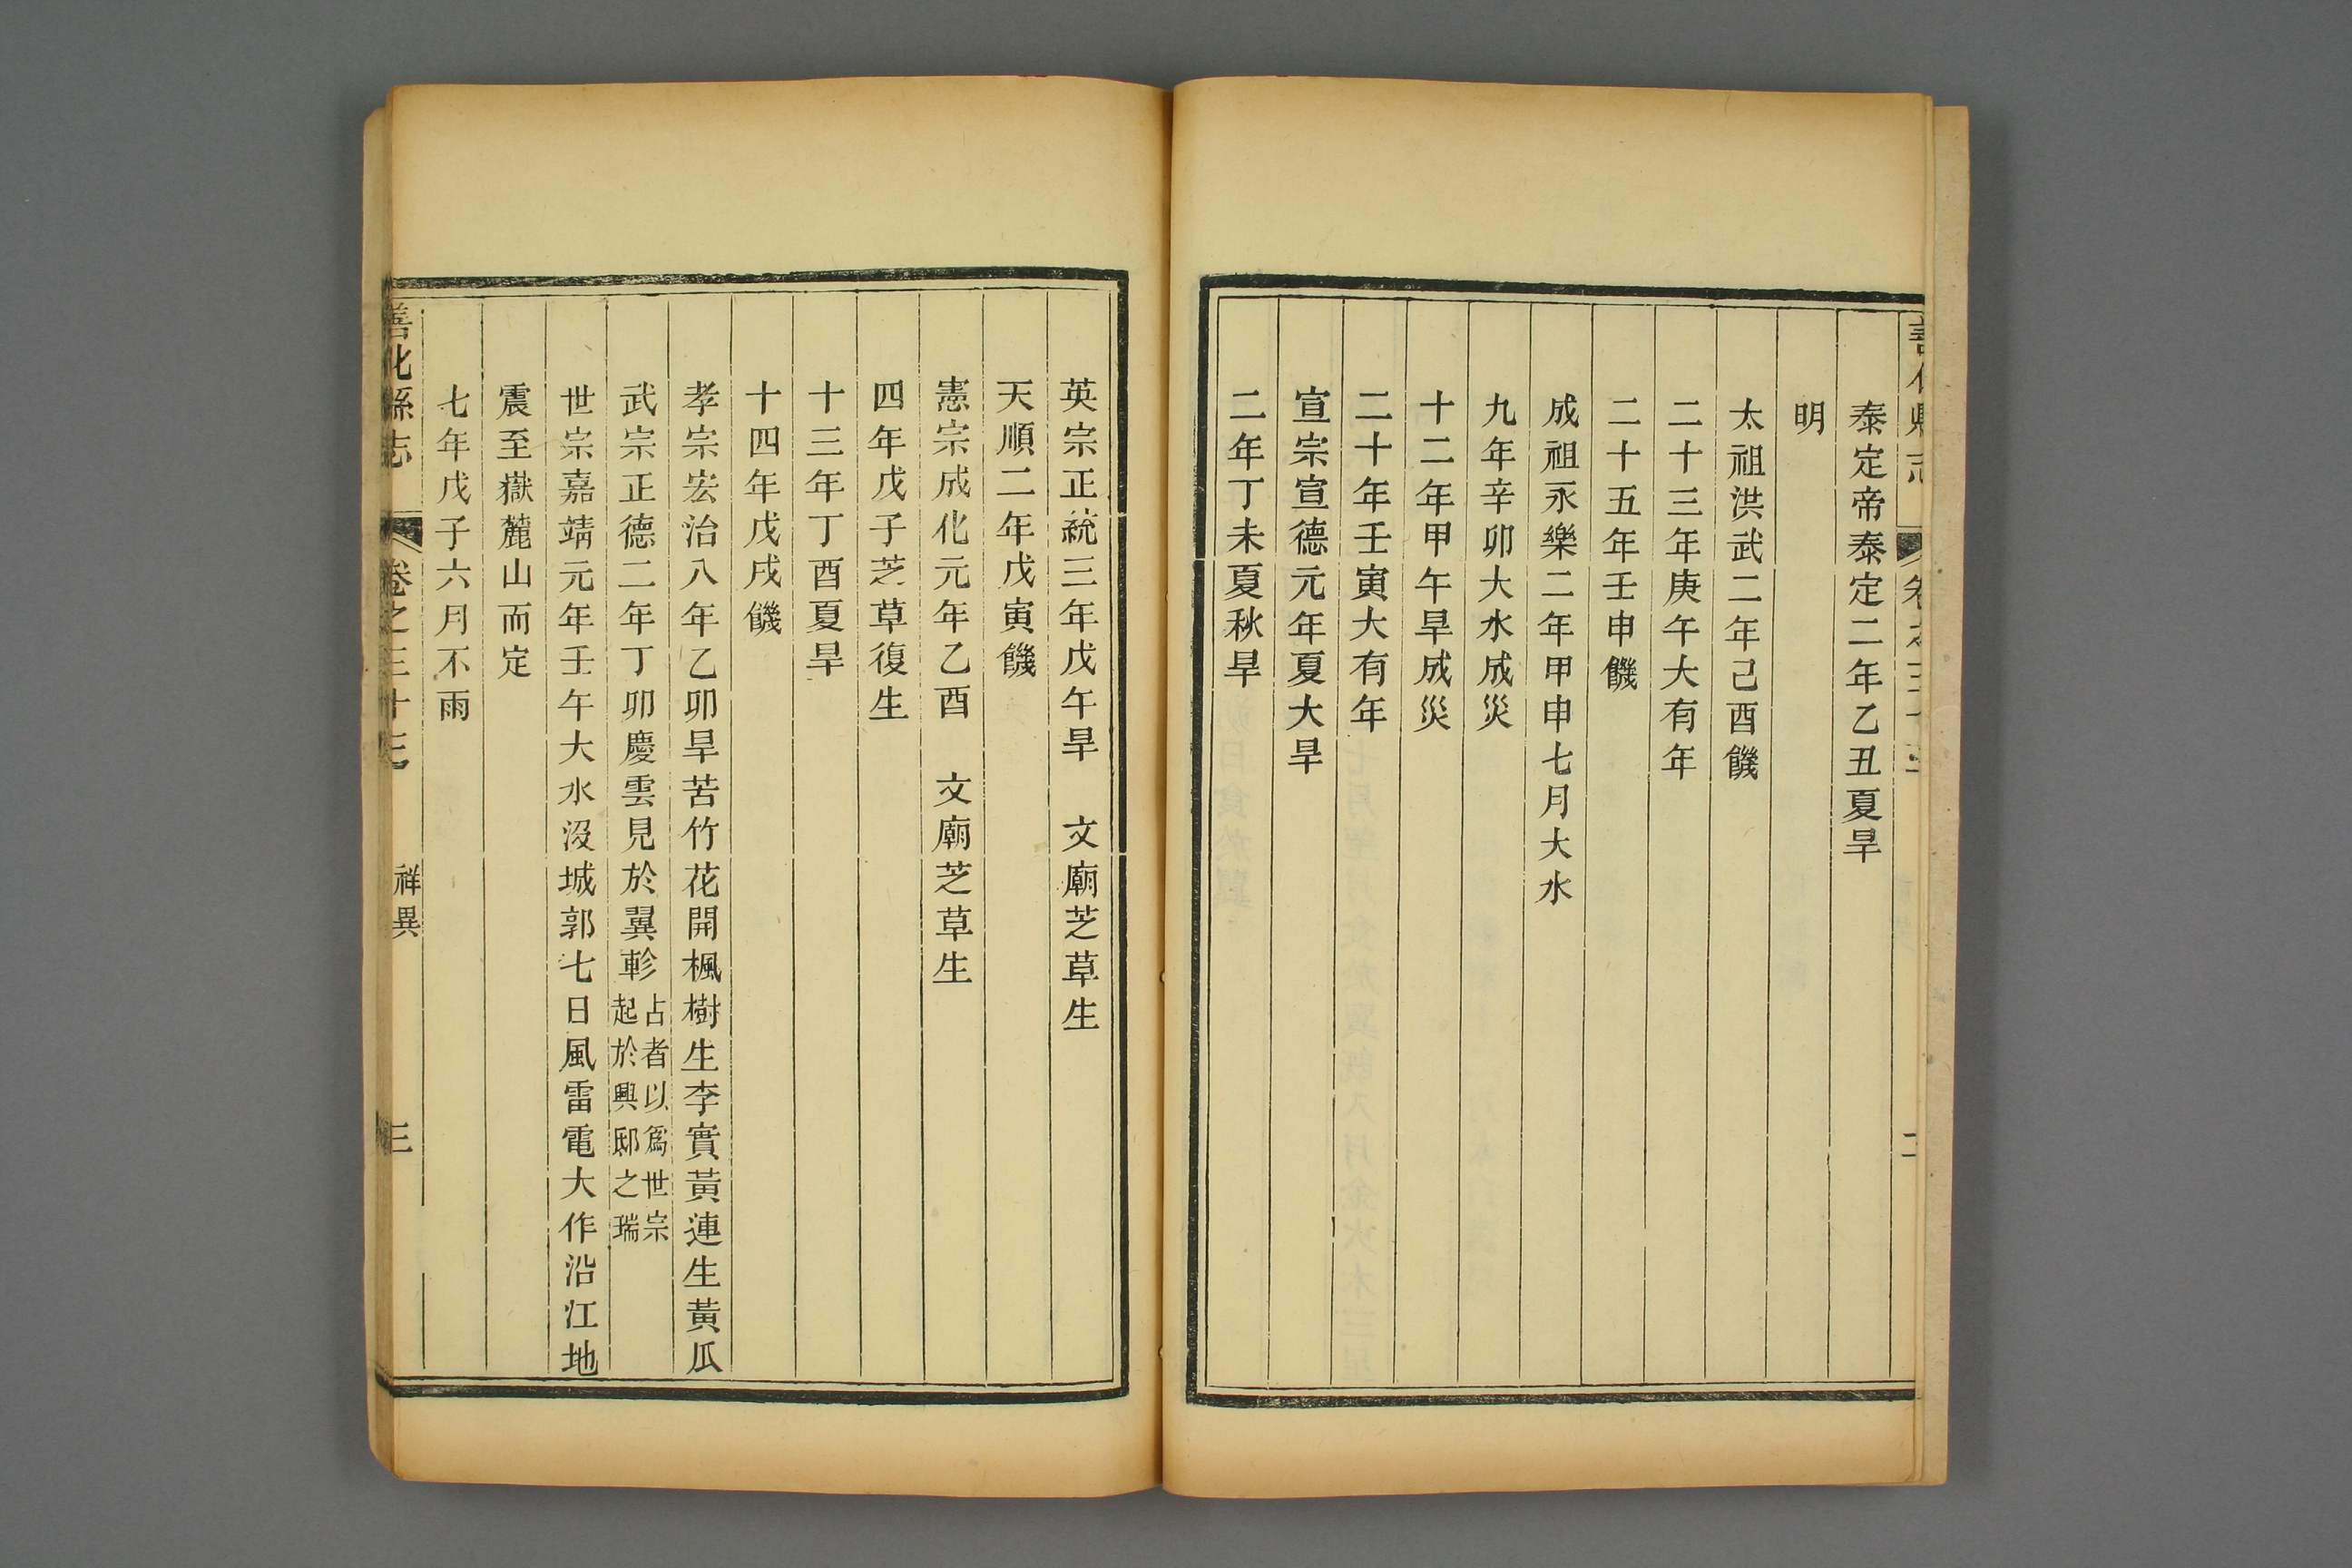 泰定帝泰定二年乙丑夏旱
明
太祖洪武二年己酉饑
二十三年庚午大有年
二十五年壬申饑
成祖永樂二年甲申七月大水
九年辛卯大水成災
十二年甲午旱成災
二十年壬寅大有年
宣宗宣德元年夏大旱
二年丁未夏秋旱
英宗正統三年戊午旱　文廟芝草生
天順二年戊寅饑
憲宗成化元年乙酉　文廟芝草生
四年戊子芝草復生
十三年丁酉夏旱
十四年戊戌饑
孝宗宏治八年乙卯旱苦竹花開楓樹生李實黃連生黃瓜
武宗正德二年丁卯慶雲見於翼軫占者以爲世宗起於興邸之瑞
世宗嘉靖元年壬午大水沒城郭七日風雷電大作沿江地
震至嶽麓山而定
七年戊子六月不雨
善化縣志　卷之三十三　祥異　三